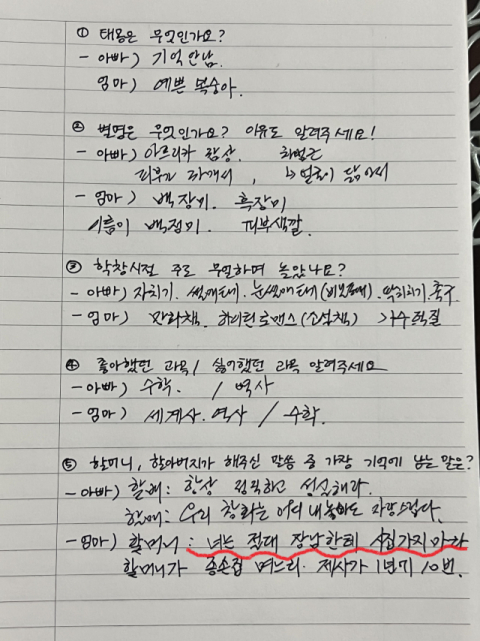 ① 태몽은 무엇인가요?
- 아빠) 기억안남.
엄마) 예쁜 복숭아.
② 별명은 무엇인가요? 이유도 알려주세요!
- 아빠) 아프리카 깜상. 최범근
피부가 까매서, ↳ 얼굴이 닮아서
- 엄마) 백장미. 흑장미
이름이 백점미. 피부색깔.
③ 학창시절 주로 무얼하며 놀았나요?
- 아빠) 자치기. 썰매타기. 눈썰매타기(비료푸대). 딱지치기. 축구
- 엄마) 만화책. 하이틴로맨스(소설책) 가수덕질
④ 좋아했던 과목 / 싫어했던 과목 알려주세요
- 아빠) 수학. / 역사
- 엄마) 세계사. 역사 / 수학.
⑤ 할머니, 할아버지가 해주신 말씀 중 가장 기억에 남는 말은?
- 아빠) 할배: 항상 정직하고 성실해라.
할매: 우리 창화는 어디 내놓아도 자랑스럽다.
- 엄마) 할머니: 너는 절대 장남한테 시집가지마라
할머니가 종손집 며느리. 제사가 1년에 10번.